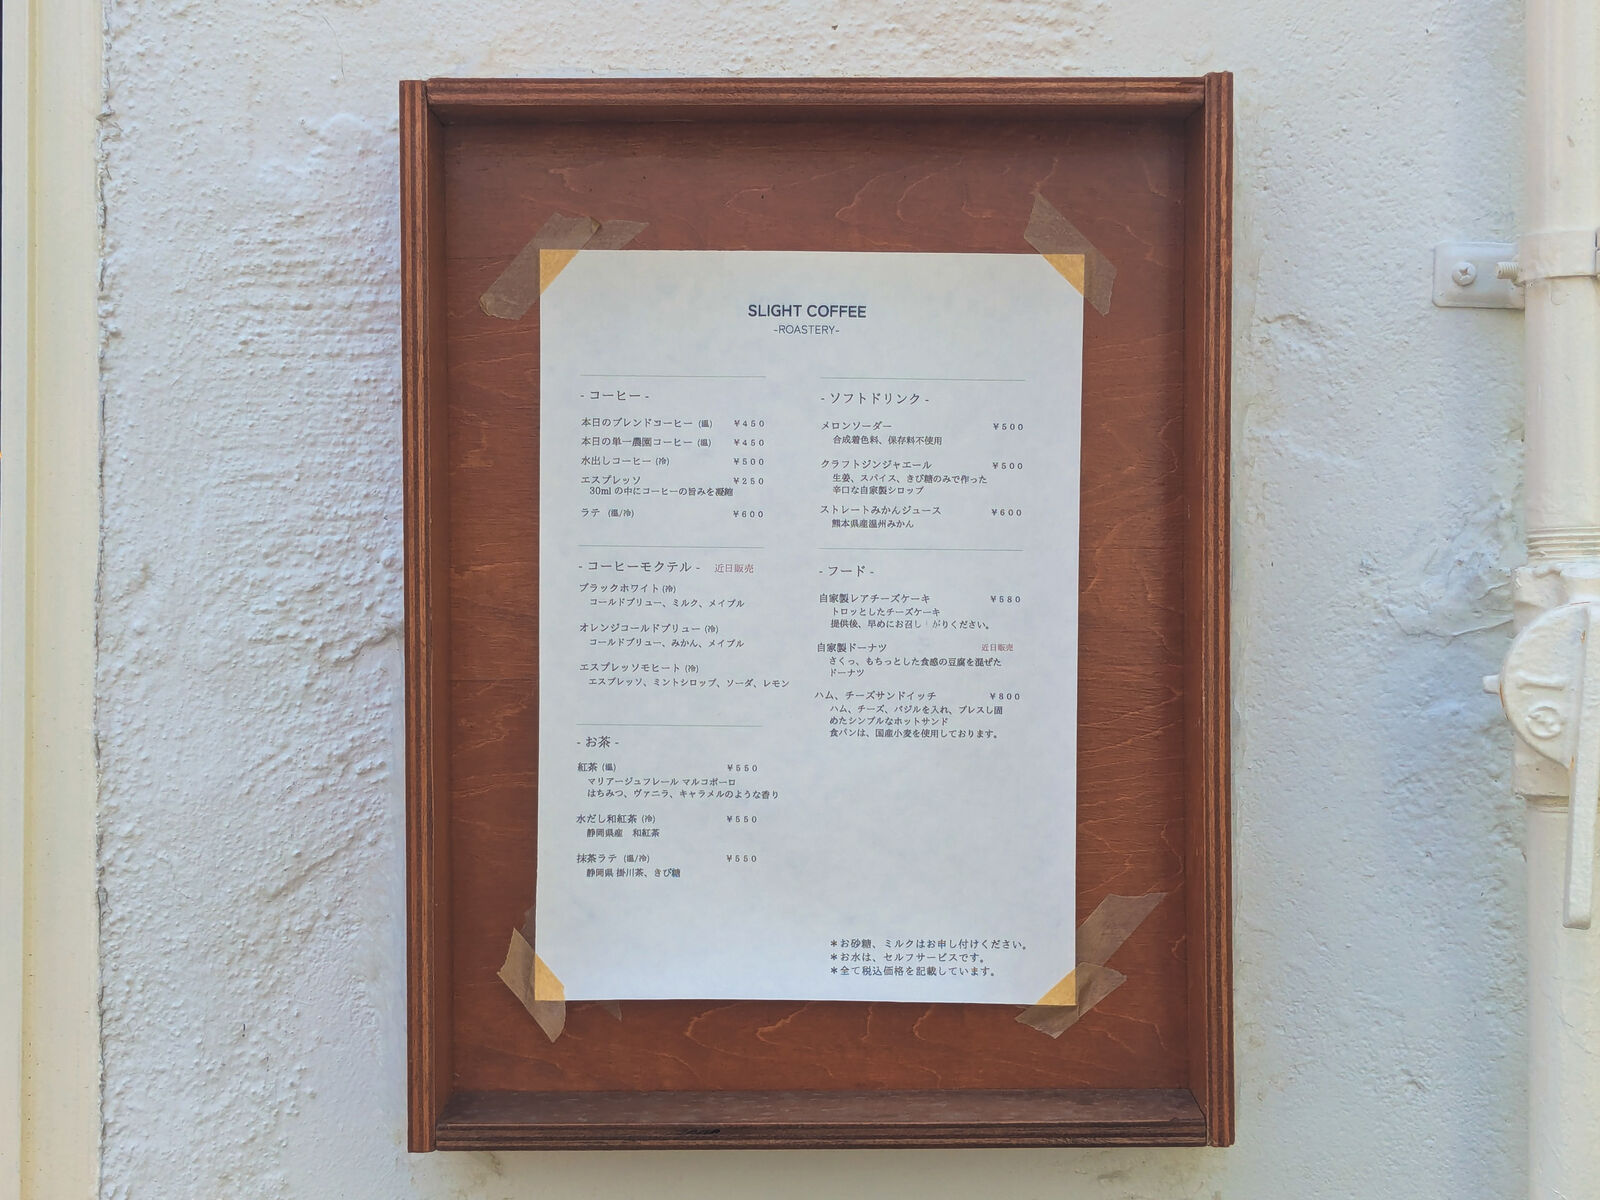 SLIGHT COFFEE
-ROASTERY-
- コーヒー -
本日のブレンドコーヒー (温) ￥450
本日の単一農園コーヒー (温) ￥450
水出しコーヒー (冷) ￥500
エスプレッソ ￥250
30ml の中にコーヒーの旨みを凝縮
ラテ (温/冷) ￥600
- コーヒーモクテル - 近日販売
ブラックホワイト (冷)
コールドブリュー、ミルク、メイプル
オレンジコールドブリュー (冷)
コールドブリュー、みかん、メイプル
エスプレッソモヒート (冷)
エスプレッソ、ミントシロップ、ソーダ、レモン
- お茶 -
紅茶 (温) ￥550
マリアージュフレール マルコポーロ
はちみつ、ヴァニラ、キャラメルのような香り
水だし和紅茶 (冷) ￥550
静岡県産 和紅茶
抹茶ラテ (温/冷) ￥550
静岡県 掛川茶、きび糖
- ソフトドリンク -
メロンソーダー ￥500
合成着色料、保存料不使用
クラフトジンジャエール ￥500
生姜、スパイス、きび糖のみで作った
辛口な自家製シロップ
ストレートみかんジュース ￥600
熊本県産温州みかん
- フード -
自家製レアチーズケーキ ￥580
トロッとしたチーズケーキ
提供後、早めにお召し上がりください。
自家製ドーナツ 近日販売
さくっ、もちっとした食感の豆腐を混ぜた
ドーナツ
ハム、チーズサンドイッチ ￥800
ハム、チーズ、バジルを入れ、プレスし固
めたシンプルなホットサンド
食パンは、国産小麦を使用しております。
＊お砂糖、ミルクはお申し付けください。
＊お水は、セルフサービスです。
＊全て税込価格を記載しています。